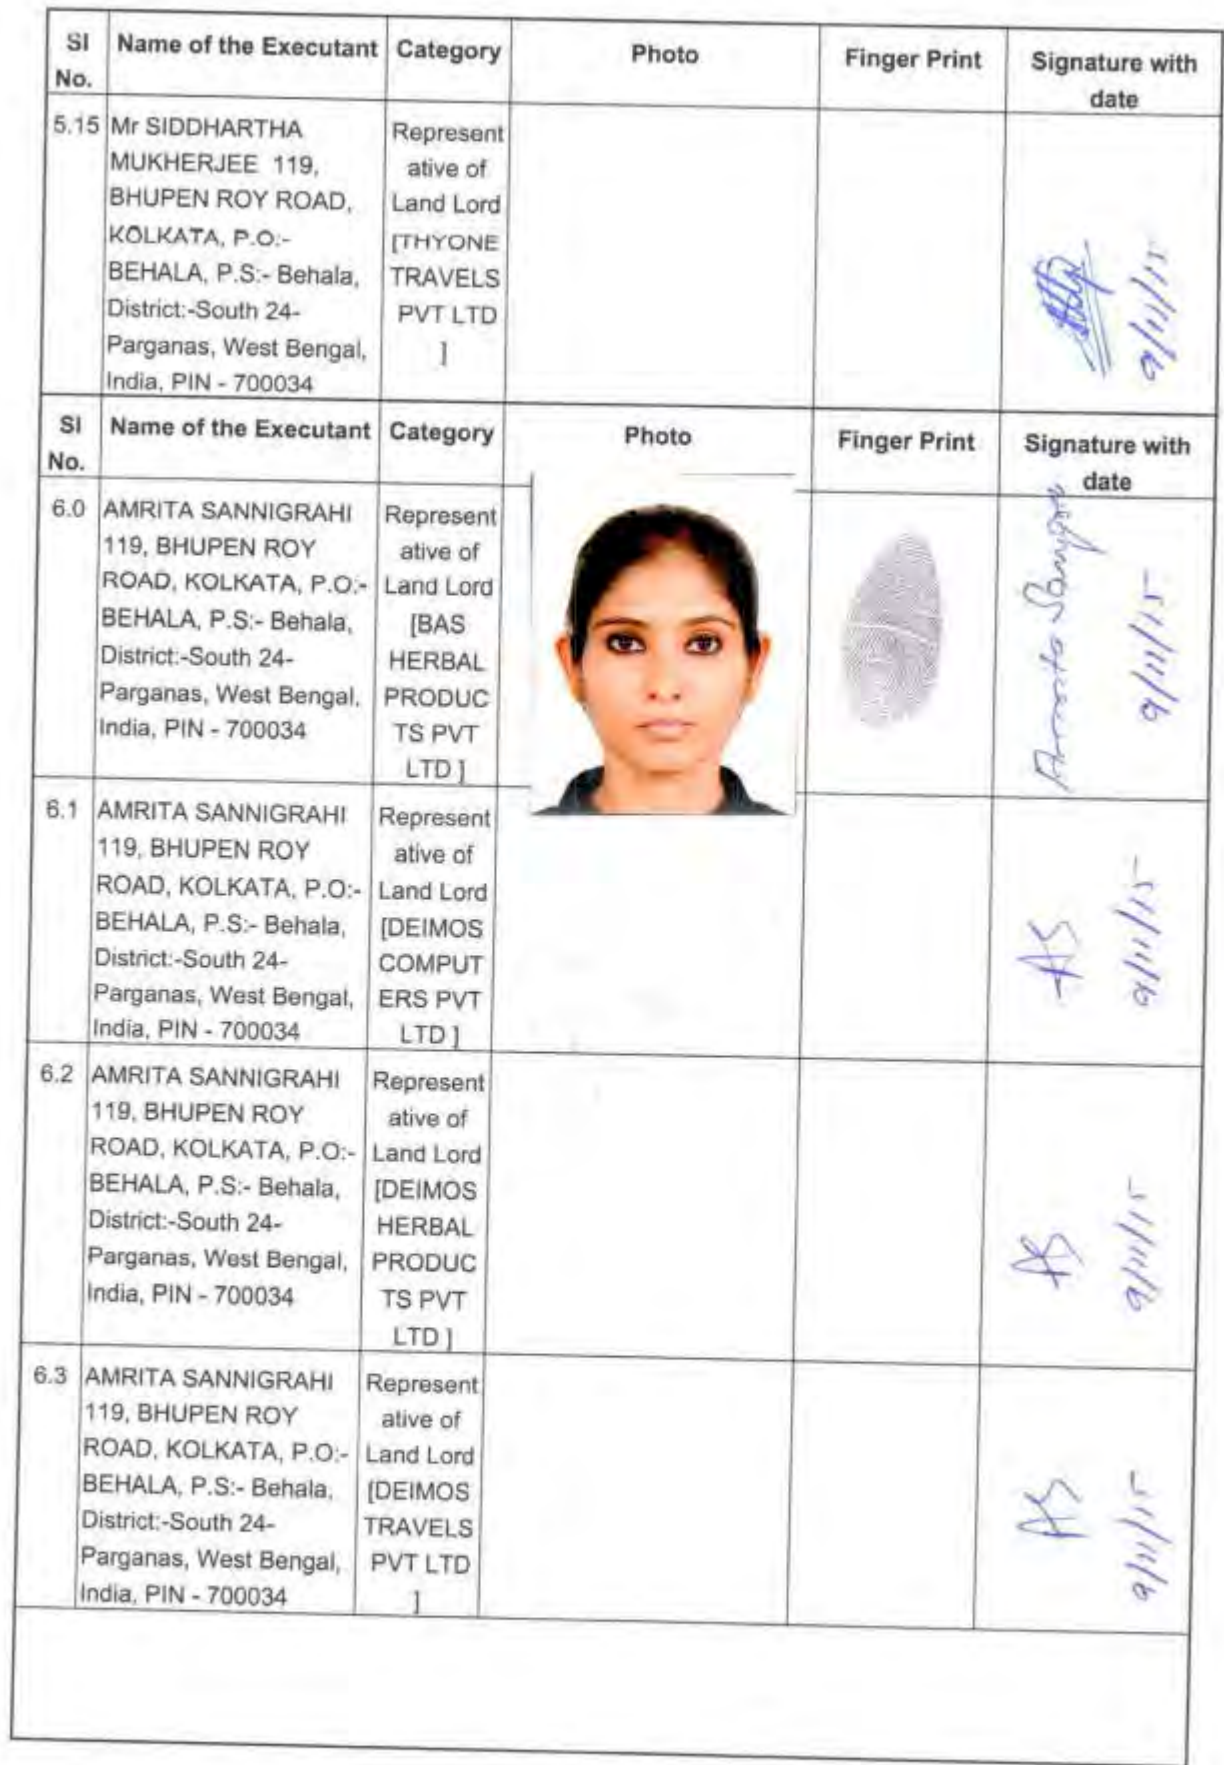 Sl No. Name of the Executant Category Photo Finger Print Signature with date
5.15 Mr SIDDHARTHA
MUKHERJEE 119,
BHUPEN ROY ROAD,
KOLKATA, P.O:-
BEHALA, P.S:- Behala,
District:-South 24-
Parganas, West Bengal,
India, PIN - 700034
Represent
ative of
Land Lord
[THYONE
TRAVELS
PVT LTD
]
9/11/15
Sl No. Name of the Executant Category Photo Finger Print Signature with date
6.0 AMRITA SANNIGRAHI
119, BHUPEN ROY
ROAD, KOLKATA, P.O:-
BEHALA, P.S:- Behala,
District:-South 24-
Parganas, West Bengal,
India, PIN - 700034
Represent
ative of
Land Lord
[BAS
HERBAL
PRODUC
TS PVT
LTD ]
Amrita Sannigrahi
9/11/15
6.1 AMRITA SANNIGRAHI
119, BHUPEN ROY
ROAD, KOLKATA, P.O:-
BEHALA, P.S:- Behala,
District:-South 24-
Parganas, West Bengal,
India, PIN - 700034
Represent
ative of
Land Lord
[DEIMOS
COMPUT
ERS PVT
LTD ]
AS
9/11/15
6.2 AMRITA SANNIGRAHI
119, BHUPEN ROY
ROAD, KOLKATA, P.O:-
BEHALA, P.S:- Behala,
District:-South 24-
Parganas, West Bengal,
India, PIN - 700034
Represent
ative of
Land Lord
[DEIMOS
HERBAL
PRODUC
TS PVT
LTD ]
AS
9/11/15
6.3 AMRITA SANNIGRAHI
119, BHUPEN ROY
ROAD, KOLKATA, P.O:-
BEHALA, P.S:- Behala,
District:-South 24-
Parganas, West Bengal,
India, PIN - 700034
Represent
ative of
Land Lord
[DEIMOS
TRAVELS
PVT LTD
]
AS
9/11/15